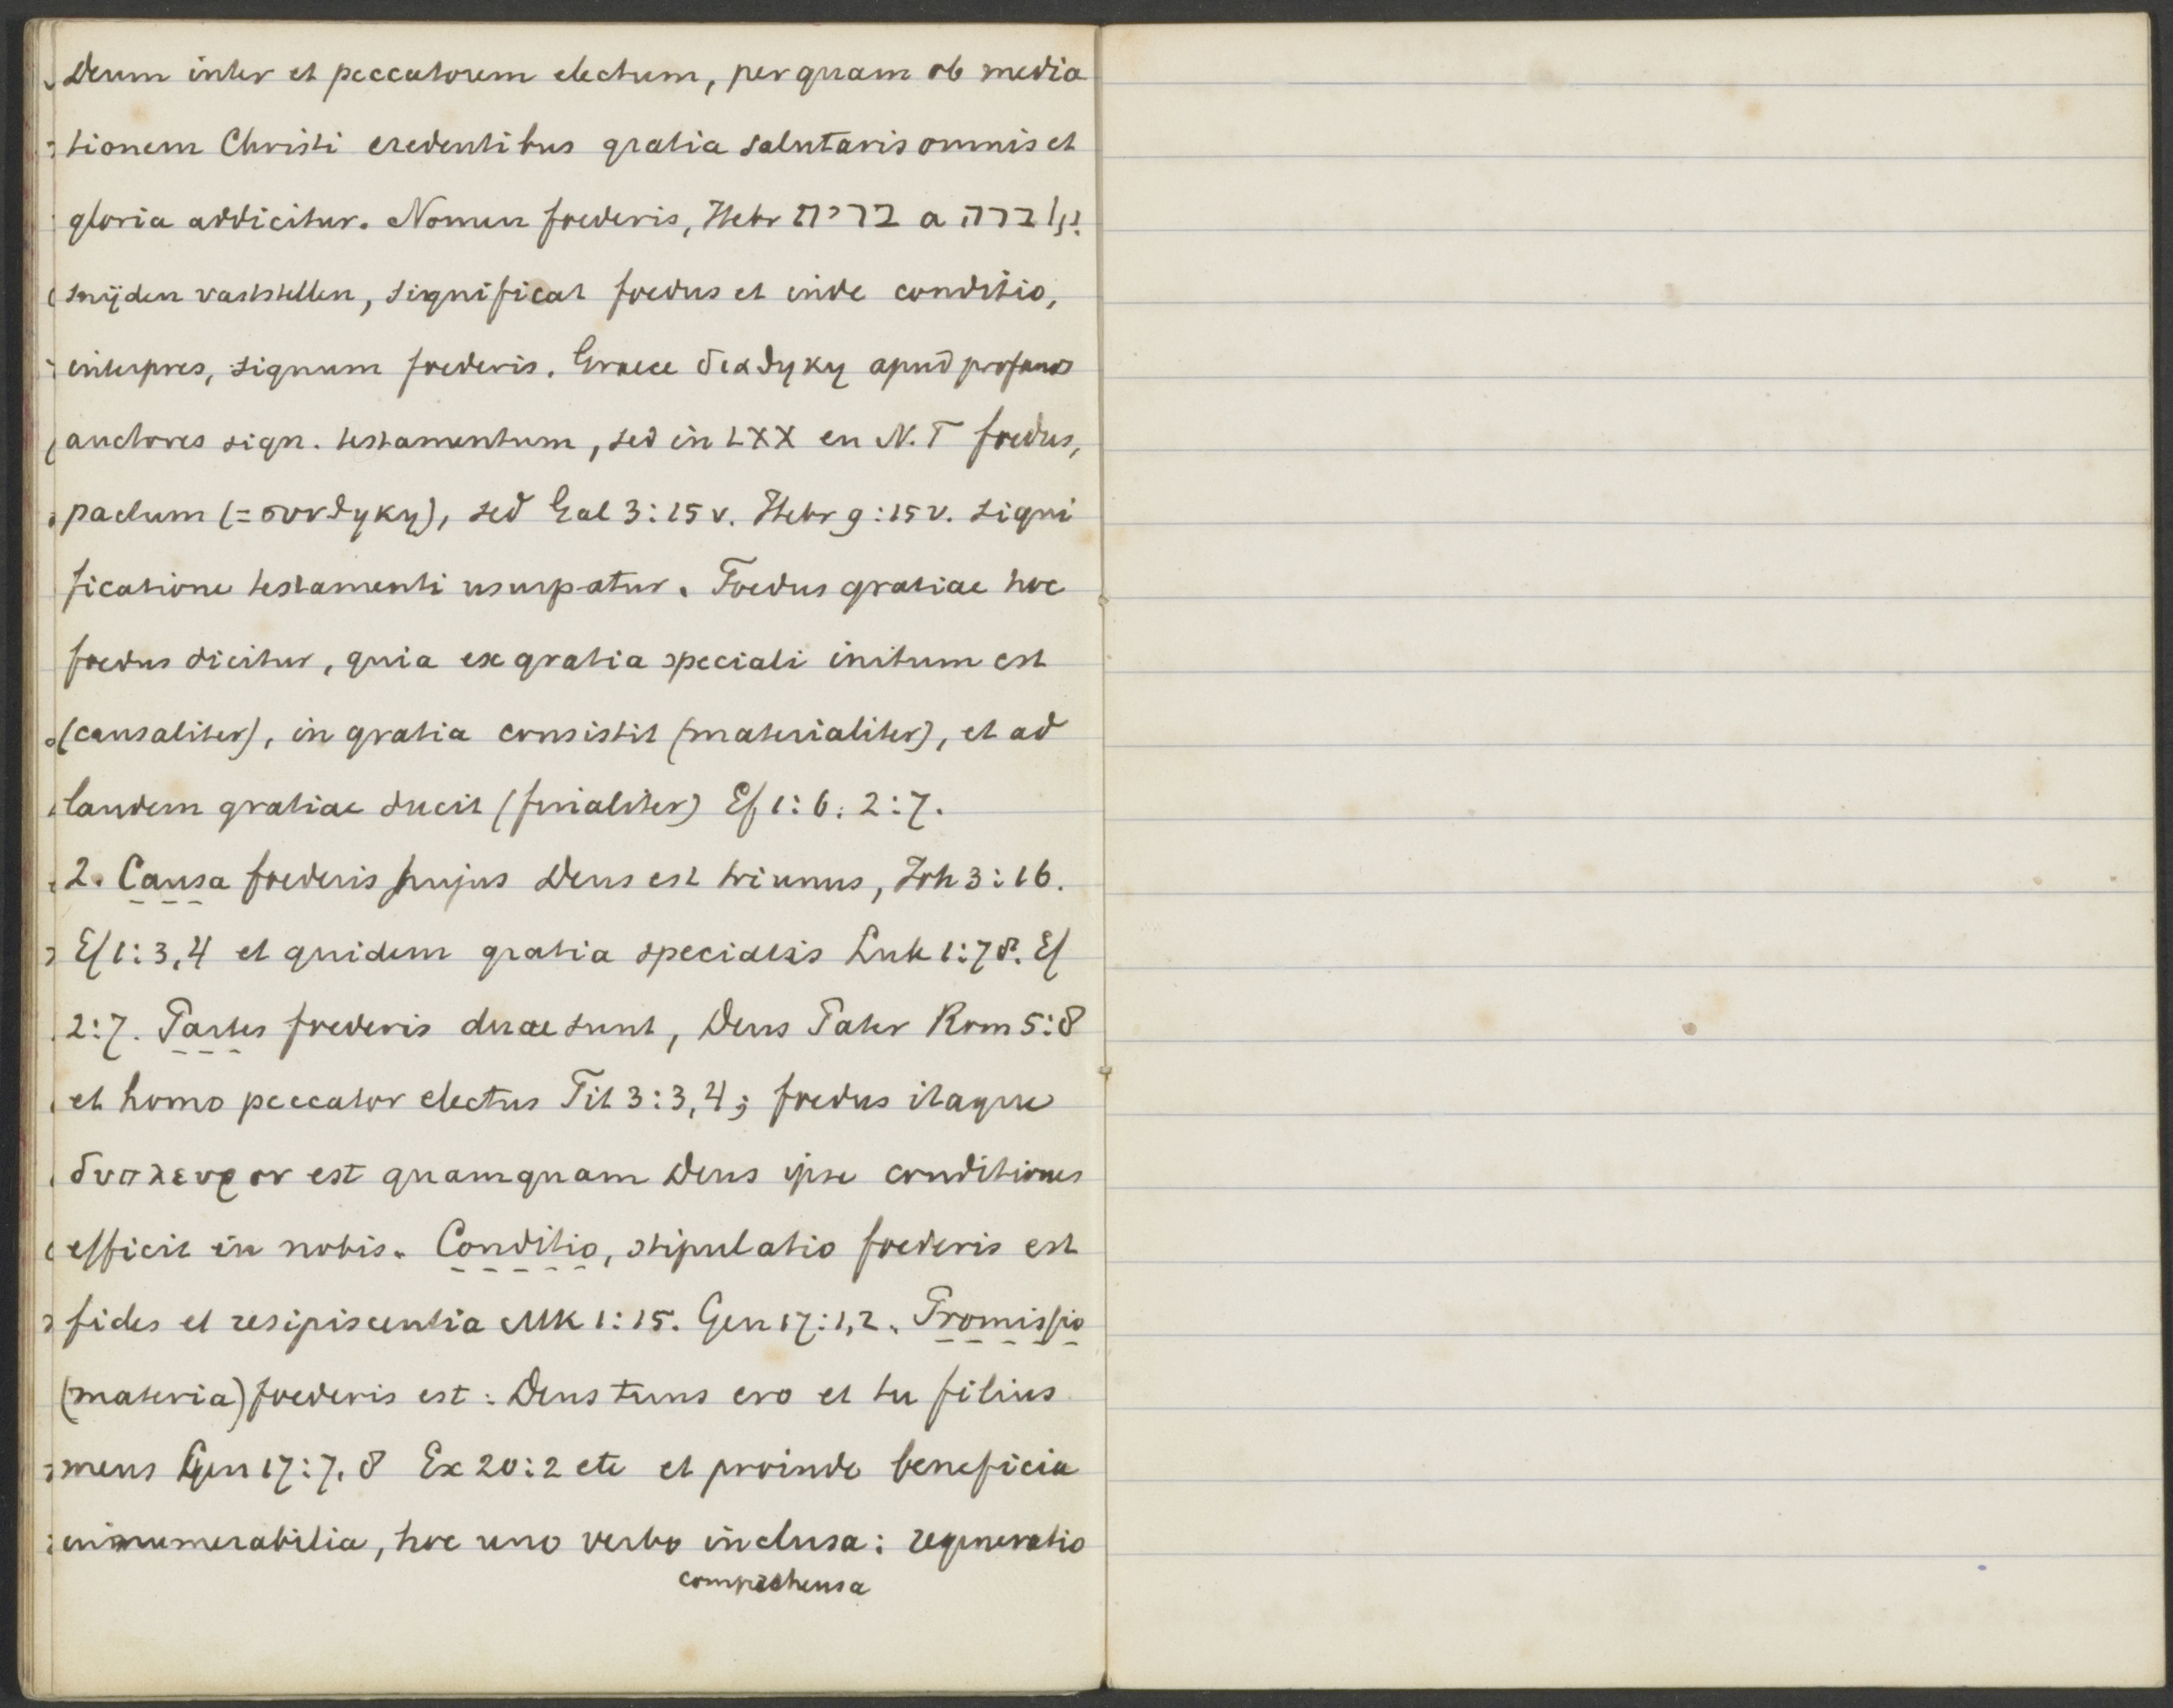 Deum inter et peccatorem electum, per quam ob media
tionem Christi credentibus gratia salutaris omnis et
gloria addicitur. Nomen foederis, Hebr ברית a ברה
snijden vaststellen, significat foedus et inde conditio,
interpres, signum foederis. Graece διαθηκη apud profanos
auctores sign. testamentum, sed in LXX en N.T foedus,
pactum (= συνθηκη), sed Gal 3:15 v. Hebr 9:15 v. signi
ficatione testamenti usurpatur. Foedus gratiae hoc
foedus dicitur, quia ex gratia speciali initum est
(causaliter), in gratia consistit (materialiter), et ad
laudem gratiae ducit (finialiter) Ef 1:6. 2:7.
2. Causa foederis hujus Deus est triunus, Joh 3:16.
Ef 1:3,4 et quidem gratia specialis Luk 1:78. Ef
2:7. Partes foederis duae sunt, Deus Pater Rom 5:8
et homo peccator electus Tit 3:3,4; foedus itaque
δυπλευρον est quamquam Deus ipse conditiones
efficit in nobis. Conditio, stipulatio foederis est
fides et resipiscentia Mk 1:15. Gen 17:1,2. Promissio
(materia) foederis est: Deus tuus ero et tu filius
meus Gen 17:7,8 Ex 20:2 etc et proinde beneficia
innumerabilia, hoc uno verbo inclusa: regeneratio
comprehensa